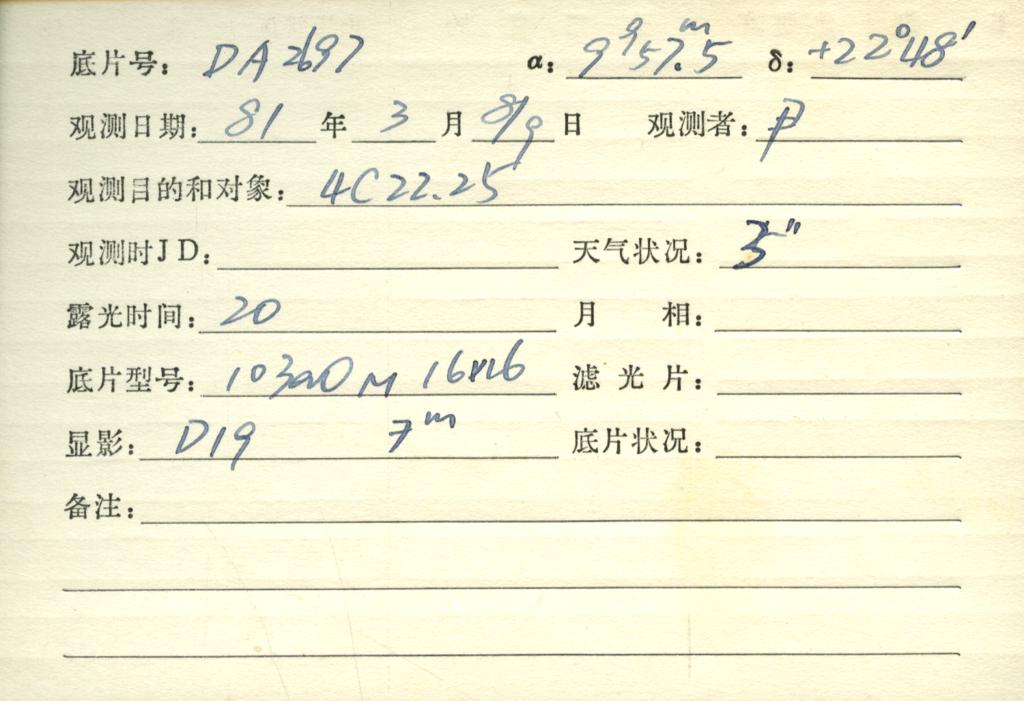 底片号: DA2697 α: 9⁹57ᵐ.5 δ: +22°48′
观测日期: 81 年 3 月 8/9 日 观测者: 尹
观测目的和对象: 4C22.25
观测时JD: 天气状况: 3″
露光时间: 20 月 相:
底片型号: 103aO M 16×16 滤光片:
显影: D19 7ᵐ 底片状况:
备注: